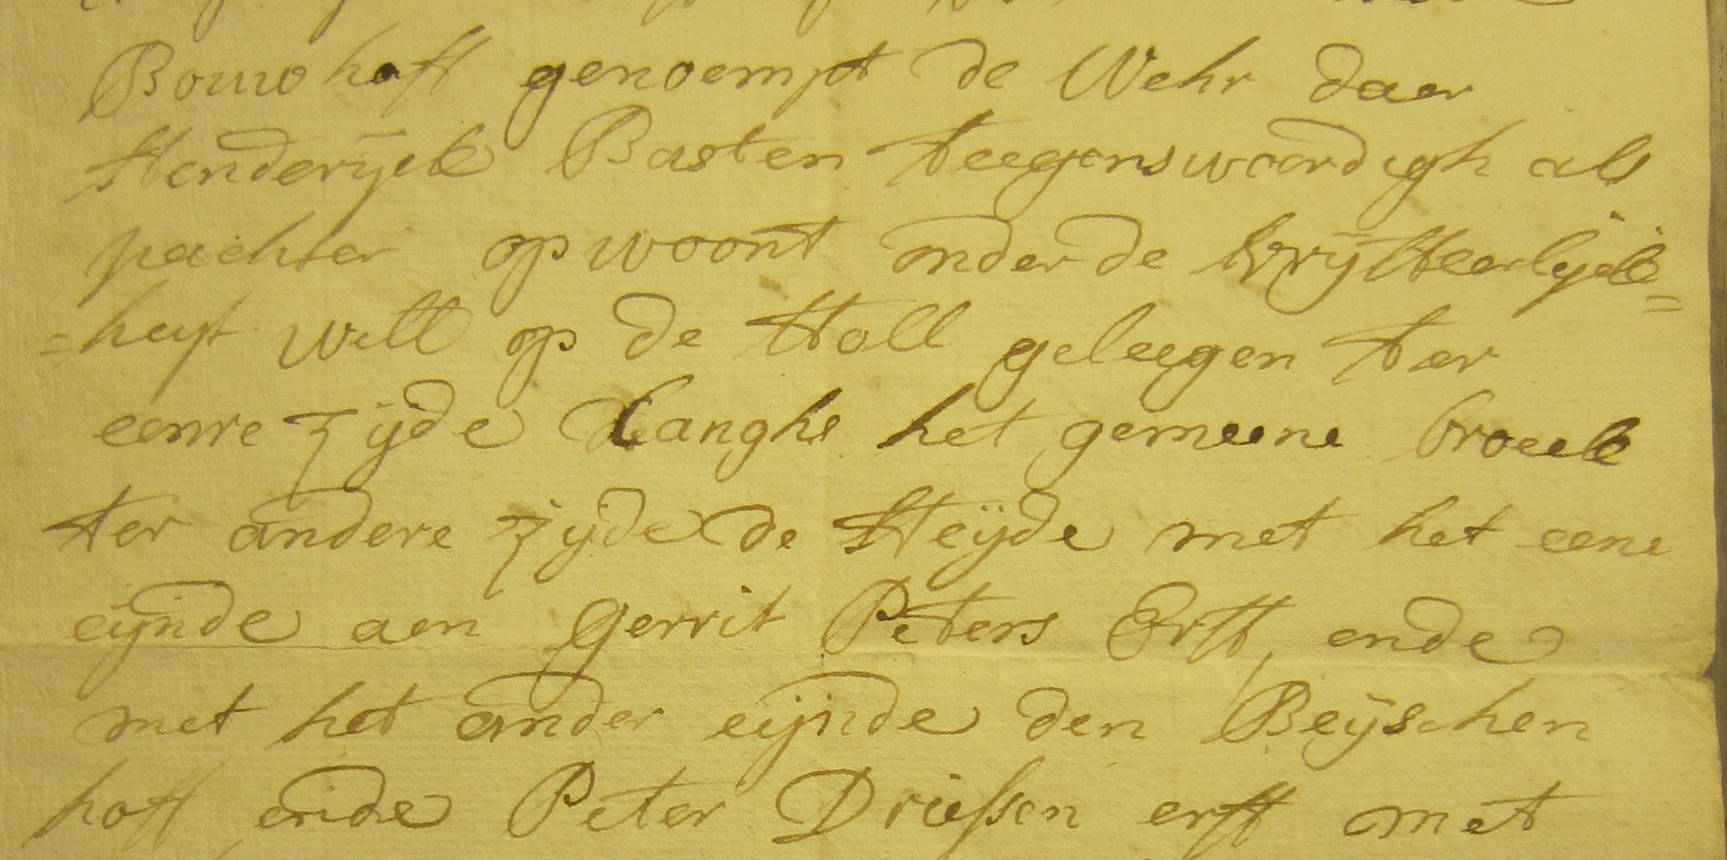 Bouwhoff genoempt de Wehr daer
Henderijck Basten teegenswoordigh als
pachter op woont onder de vrij Heerlijck=
=heijt Well op de Holl geleegen ter
eenre zijde Langhs het gemeene broeck
ter andere zijde de Heijde met het eene
eijnde aen Gerrit Peters Erff, ende
met het ander eijnde den Beijschen
hoff ende Peter Driessen erff met